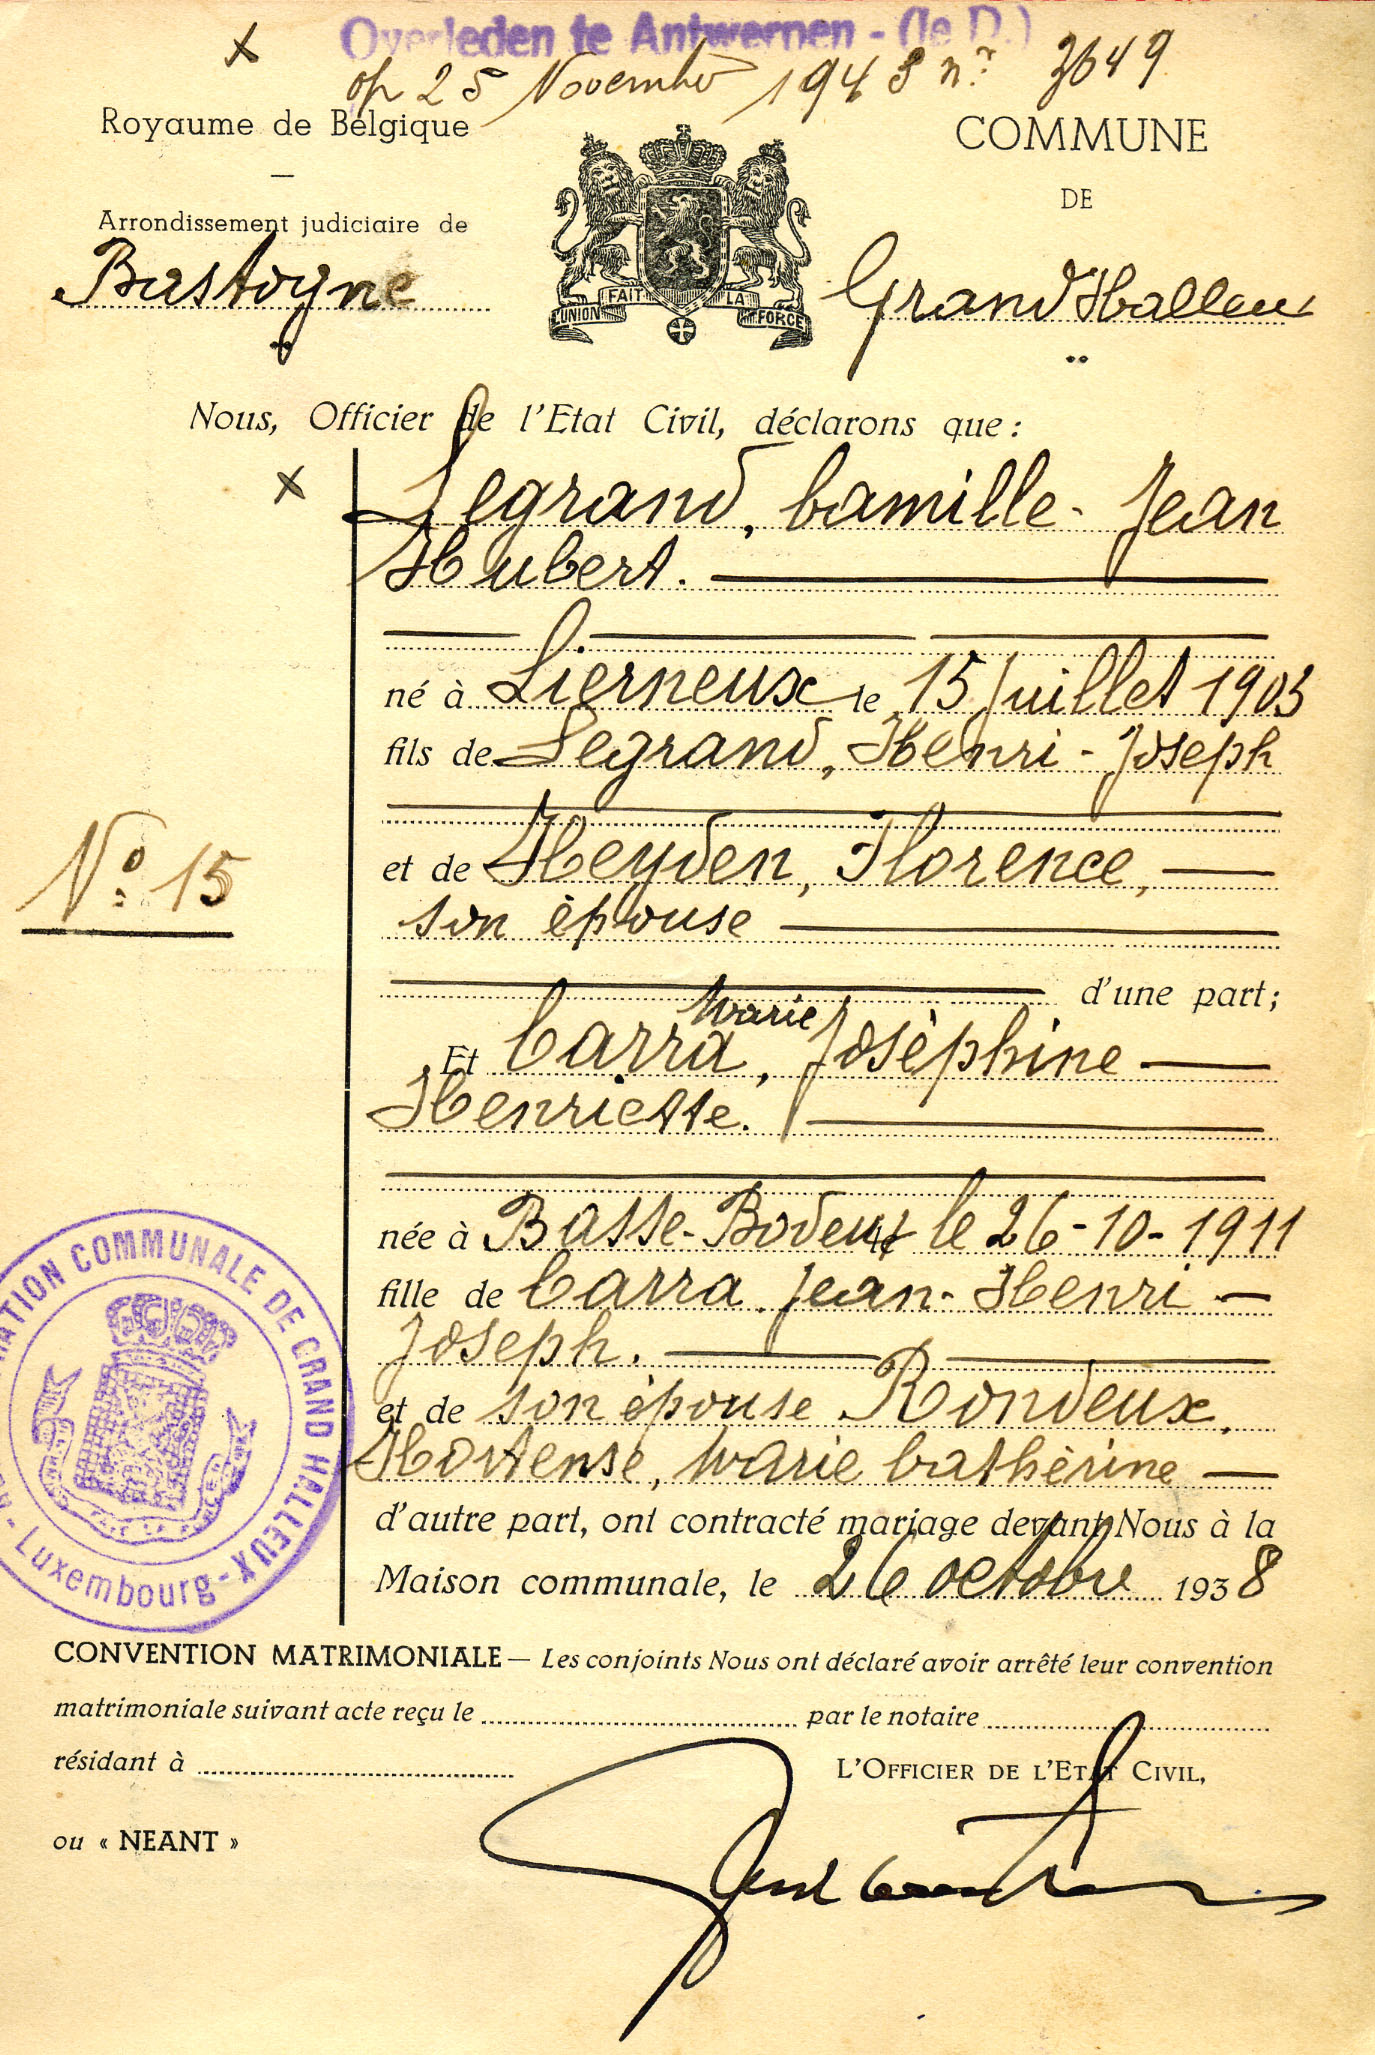 Overleden te Antwerpen - (1e D.)
x
op 25 November 1943 nr 3649
Royaume de Belgique
COMMUNE
DE
Arrondissement judiciaire de
Bastogne
Grand Halleux
L'UNION FAIT LA FORCE
Nous, Officier de l'Etat Civil, déclarons que :
x
Legrand, Camille - Jean
Hubert.
né à Lierneux le 15 Juillet 1903
fils de Legrand, Henri - Joseph
et de Heyden, Florence,
No 15
son épouse
d'une part;
Marie
Et Carra, Joséphine
Henriette.
née à Basse-Bodeux le 26-10-1911
fille de Carra Jean-Henri
Joseph.
et de son épouse Rondeux,
Hortense, Marie Cathérine
d'autre part, ont contracté mariage devant Nous à la
Maison communale, le 26 octobre 1938
COMMUNALE DE GRAND HALLEUX
- Luxembourg -
CONVENTION MATRIMONIALE — Les conjoints Nous ont déclaré avoir arrêté leur convention
matrimoniale suivant acte reçu le par le notaire
résidant à
L'OFFICIER DE L'ETAT CIVIL,
ou « NEANT »